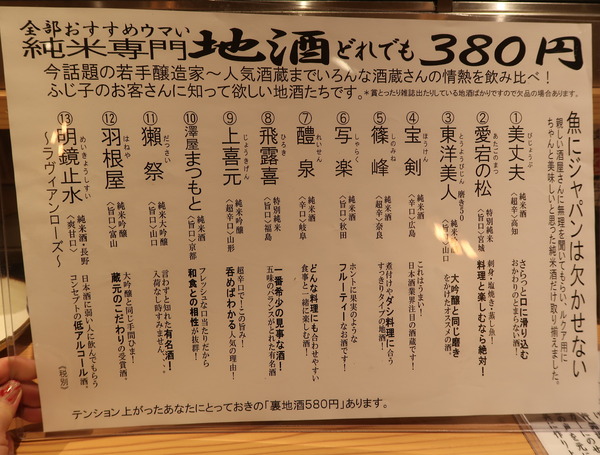 全部おすすめウマい
純米専門地酒どれでも380円
今話題の若手醸造家～人気酒蔵までいろんな酒蔵さんの情熱を飲み比べ！
ふじ子のお客さんに知って欲しい地酒たちです。*賞とったり雑誌出たりしている地酒ばかりですので欠品の場合あります。
魚にジャパンは欠かせない
親しい酒屋さんに無理を聞いてもらい、ルクア用に
ちゃんと美味しいと思った純米酒だけ取り揃えました。
①美丈夫 びじょうふ
純米酒
〈超辛〉高知
さらっと口に滑り込む
おかわりのとまらない酒！
②愛宕の松 あたごのまつ
特別純米
〈旨口〉宮城
刺身・塩焼き・蒸し魚！
料理と楽しむなら絶対！
③東洋美人 とうようびじん 磨き50
純米
〈旨口〉山口
大吟醸と同じ磨き
をかけたオススメの酒。
④宝剣 ほうけん
純米酒
〈辛口〉広島
これはうまい！
日本酒業界注目の酒蔵です！
⑤篠峰 しのみね
純米酒
〈超辛〉奈良
煮付けやダシ料理に合う
すっきりタイプの地酒！
⑥写楽 しゃらく
純米酒
〈旨口〉秋田
ホントに果実のような
フルーティーなお酒です！
⑦醴泉 れいせん
純米酒
〈辛口〉岐阜
どんな料理にも合わせやすい
食事と一緒に楽しむ酒！
⑧飛露喜 ひろき
特別純米
〈旨口〉福島
一番希少の見事な酒！
五味のバランスがとれた有名酒
⑨上喜元 じょうきげん
純米吟醸
〈超辛口〉山形
超辛口で！この旨み！
呑めばわかる人気の理由！
⑩澤屋まつもと
純米酒
〈旨口〉京都
フレッシュな口当たりだから
和食との相性が抜群！
⑪獺祭 だっさい
純米大吟醸
〈旨口〉山口
言わずと知れた有名酒！
入荷なし時すみません。
⑫羽根屋 はねや
純米吟醸
〈旨口〉富山
大吟醸と同じ手間ひま！
蔵元のこだわりの受賞酒。
⑬明鏡止水 めいきょうしすい
～ラヴィアンローズ～
純米酒・長野
〈爽甘口〉
日本酒に弱い人に飲んでもらう
コンセプトの低アルコール酒。
《税別》
テンション上がったあなたにとっておきの「裏地酒580円」あります。